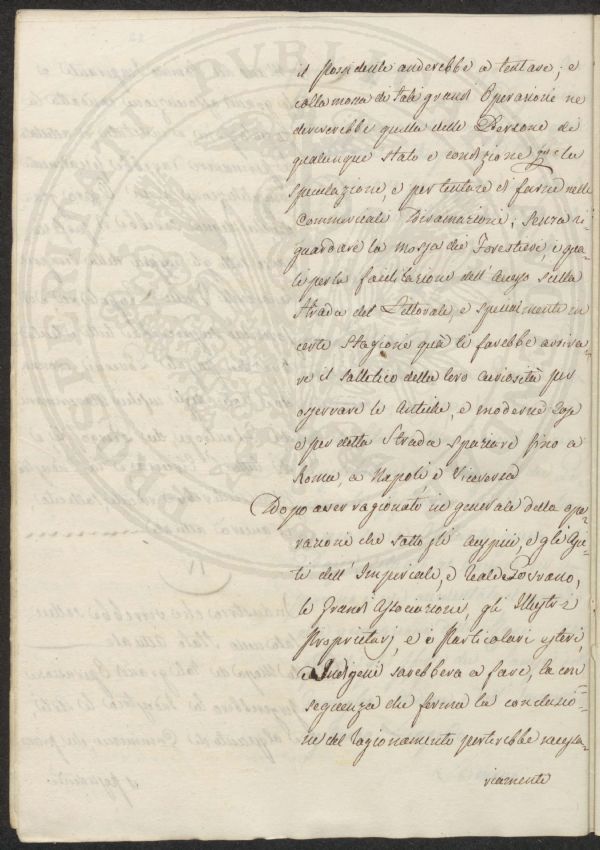 il possidente anderebbe a tentare; e
colla mossa di tali grandi Operazioni ne
deriverebbe quella delle Persone di
qualunque stato e condizione per la
speculazione, e per tentare di farne nelle
Commerciale Diramazioni; senza ri-
guardare la mossa dei Forestieri, i qua-
li per la facilitazione dell' accesso sulla
Strada del Littorale, e specialmente in
certe stagioni qua li farebbe arriva-
re il solletico della loro curiosità per
osservare le Antiche, e moderne cose
e per detta Strada spaziare fino a
Roma, a Napoli, e Viceversa
Dopo aver ragionato in generale della ope-
razioni che sotto gli auspici, e gli aju-
ti dell' Imperiale, e Reale Governo,
le Grandi Associazione, gli Illustri
Proprietarj, e i Particolari esteri,
e Indigeni sarebbero a fare, la con-
seguenza che forma la conclusio-
ne del ragionamento porterebbe necessa-
riamente